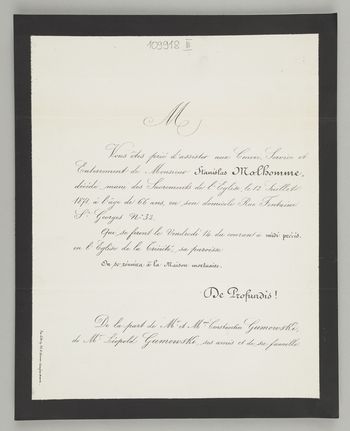 109918 III
M
Vous êtes prié d'assister aux Convoi, Service et
Enterrement de Monsieur Stanislas Molhomme,
décédé, muni des Sacrements de l'Eglise, le 12 Juillet
1871, à l'âge de 66 ans, en son domicile Rue Fontaine
St. Georges No. 32.
Qui se feront le Vendredi 14 du courant à midi précis,
en l'Eglise de la Trinité, sa paroisse.
On se réunira à la Maison mortuaire.
De Profundis!
De la part de Mr. et Mme. Constantin Gumowski,
de Mr. Léopold Gumowski, ses amis et de sa famille